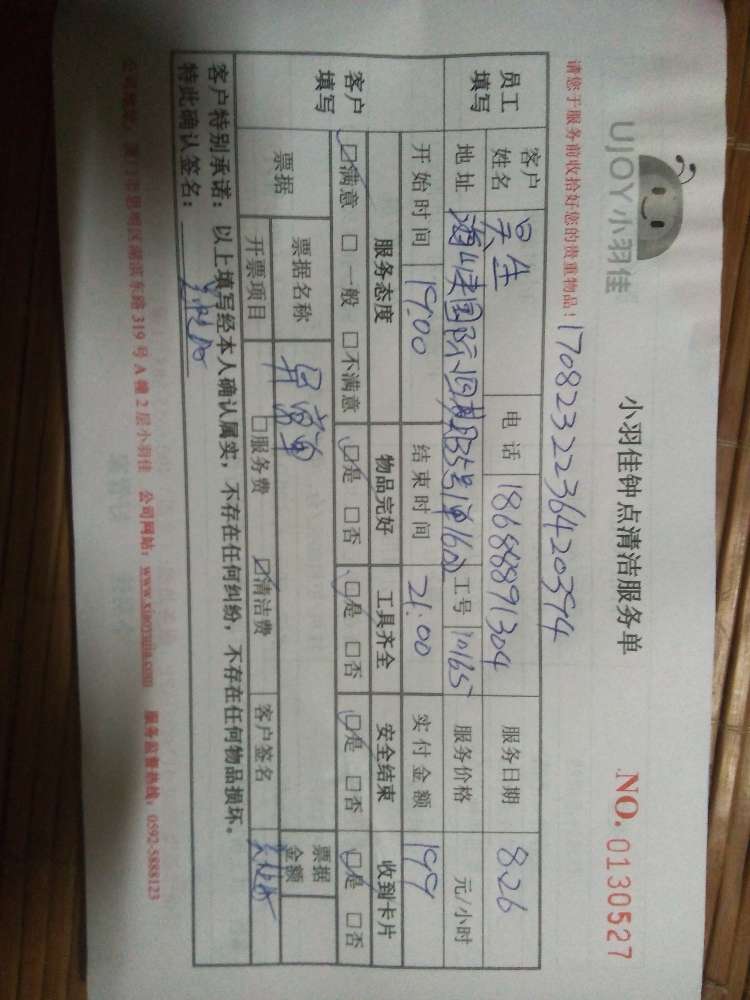 UJOY小羽佳
小羽佳钟点清洁服务单
NO. 0130527
请您于服务前收拾好您的贵重物品！
170823223642039４
员工填写
客户姓名 吴生 电话 18688891304 服务日期 8.26
地址 海峡国际 工号 10165 服务价格 元/小时
开始时间 19:00 结束时间 21:00 实付金额 199
客户填写
服务态度 物品完好 工具齐全 安全结束 收到卡片
满意 一般 不满意 是 否 是 否 是 否 是 否
票据 票据名称 票据金额
开票项目 服务费 清洁费 客户签名
客户特别承诺：以上填写经本人确认属实，不存在任何纠纷，不存在任何物品损坏。
特此确认签名：
公司地址：厦门市思明区湖滨东路 319 号 A 幢 2 层小羽佳 公司网站：www.xiaoyujia.com 服务监督热线：0592-5888123